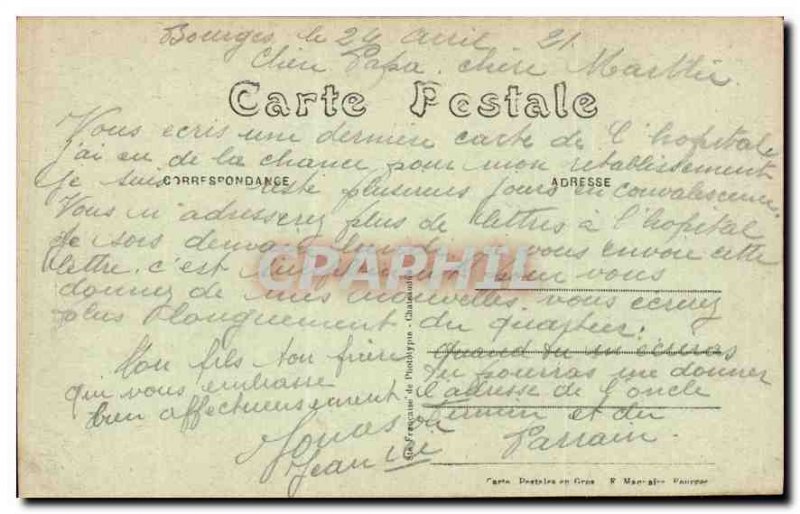 Bourges, le 24 avril 21.
Cher Papa, chère Marthe.
Carte Postale
Vous ecris une derniere carte de l'hopital
j'ai eu de la chance pour mon retablissement
CORRESPONDANCE
ADRESSE
Je suis resté plusieurs jours en convalescence.
Vous n'adresserez plus de lettres à l'hopital
Je sors demain lundi vous envoie cette
lettre. c'est simplement pour vous
donner de mes nouvelles, vous écrirez
plus longuement du quartier.
Mon fils ton frère
qui vous embrasse
bien affectueusement
Jean
Quand tu m'écriras
tu pourras me donner
l'adresse de l'oncle
et du
Parrain.
CPAPHIL
Sté Française de Phototypie - Chateaudun
Carte Postales en Gros